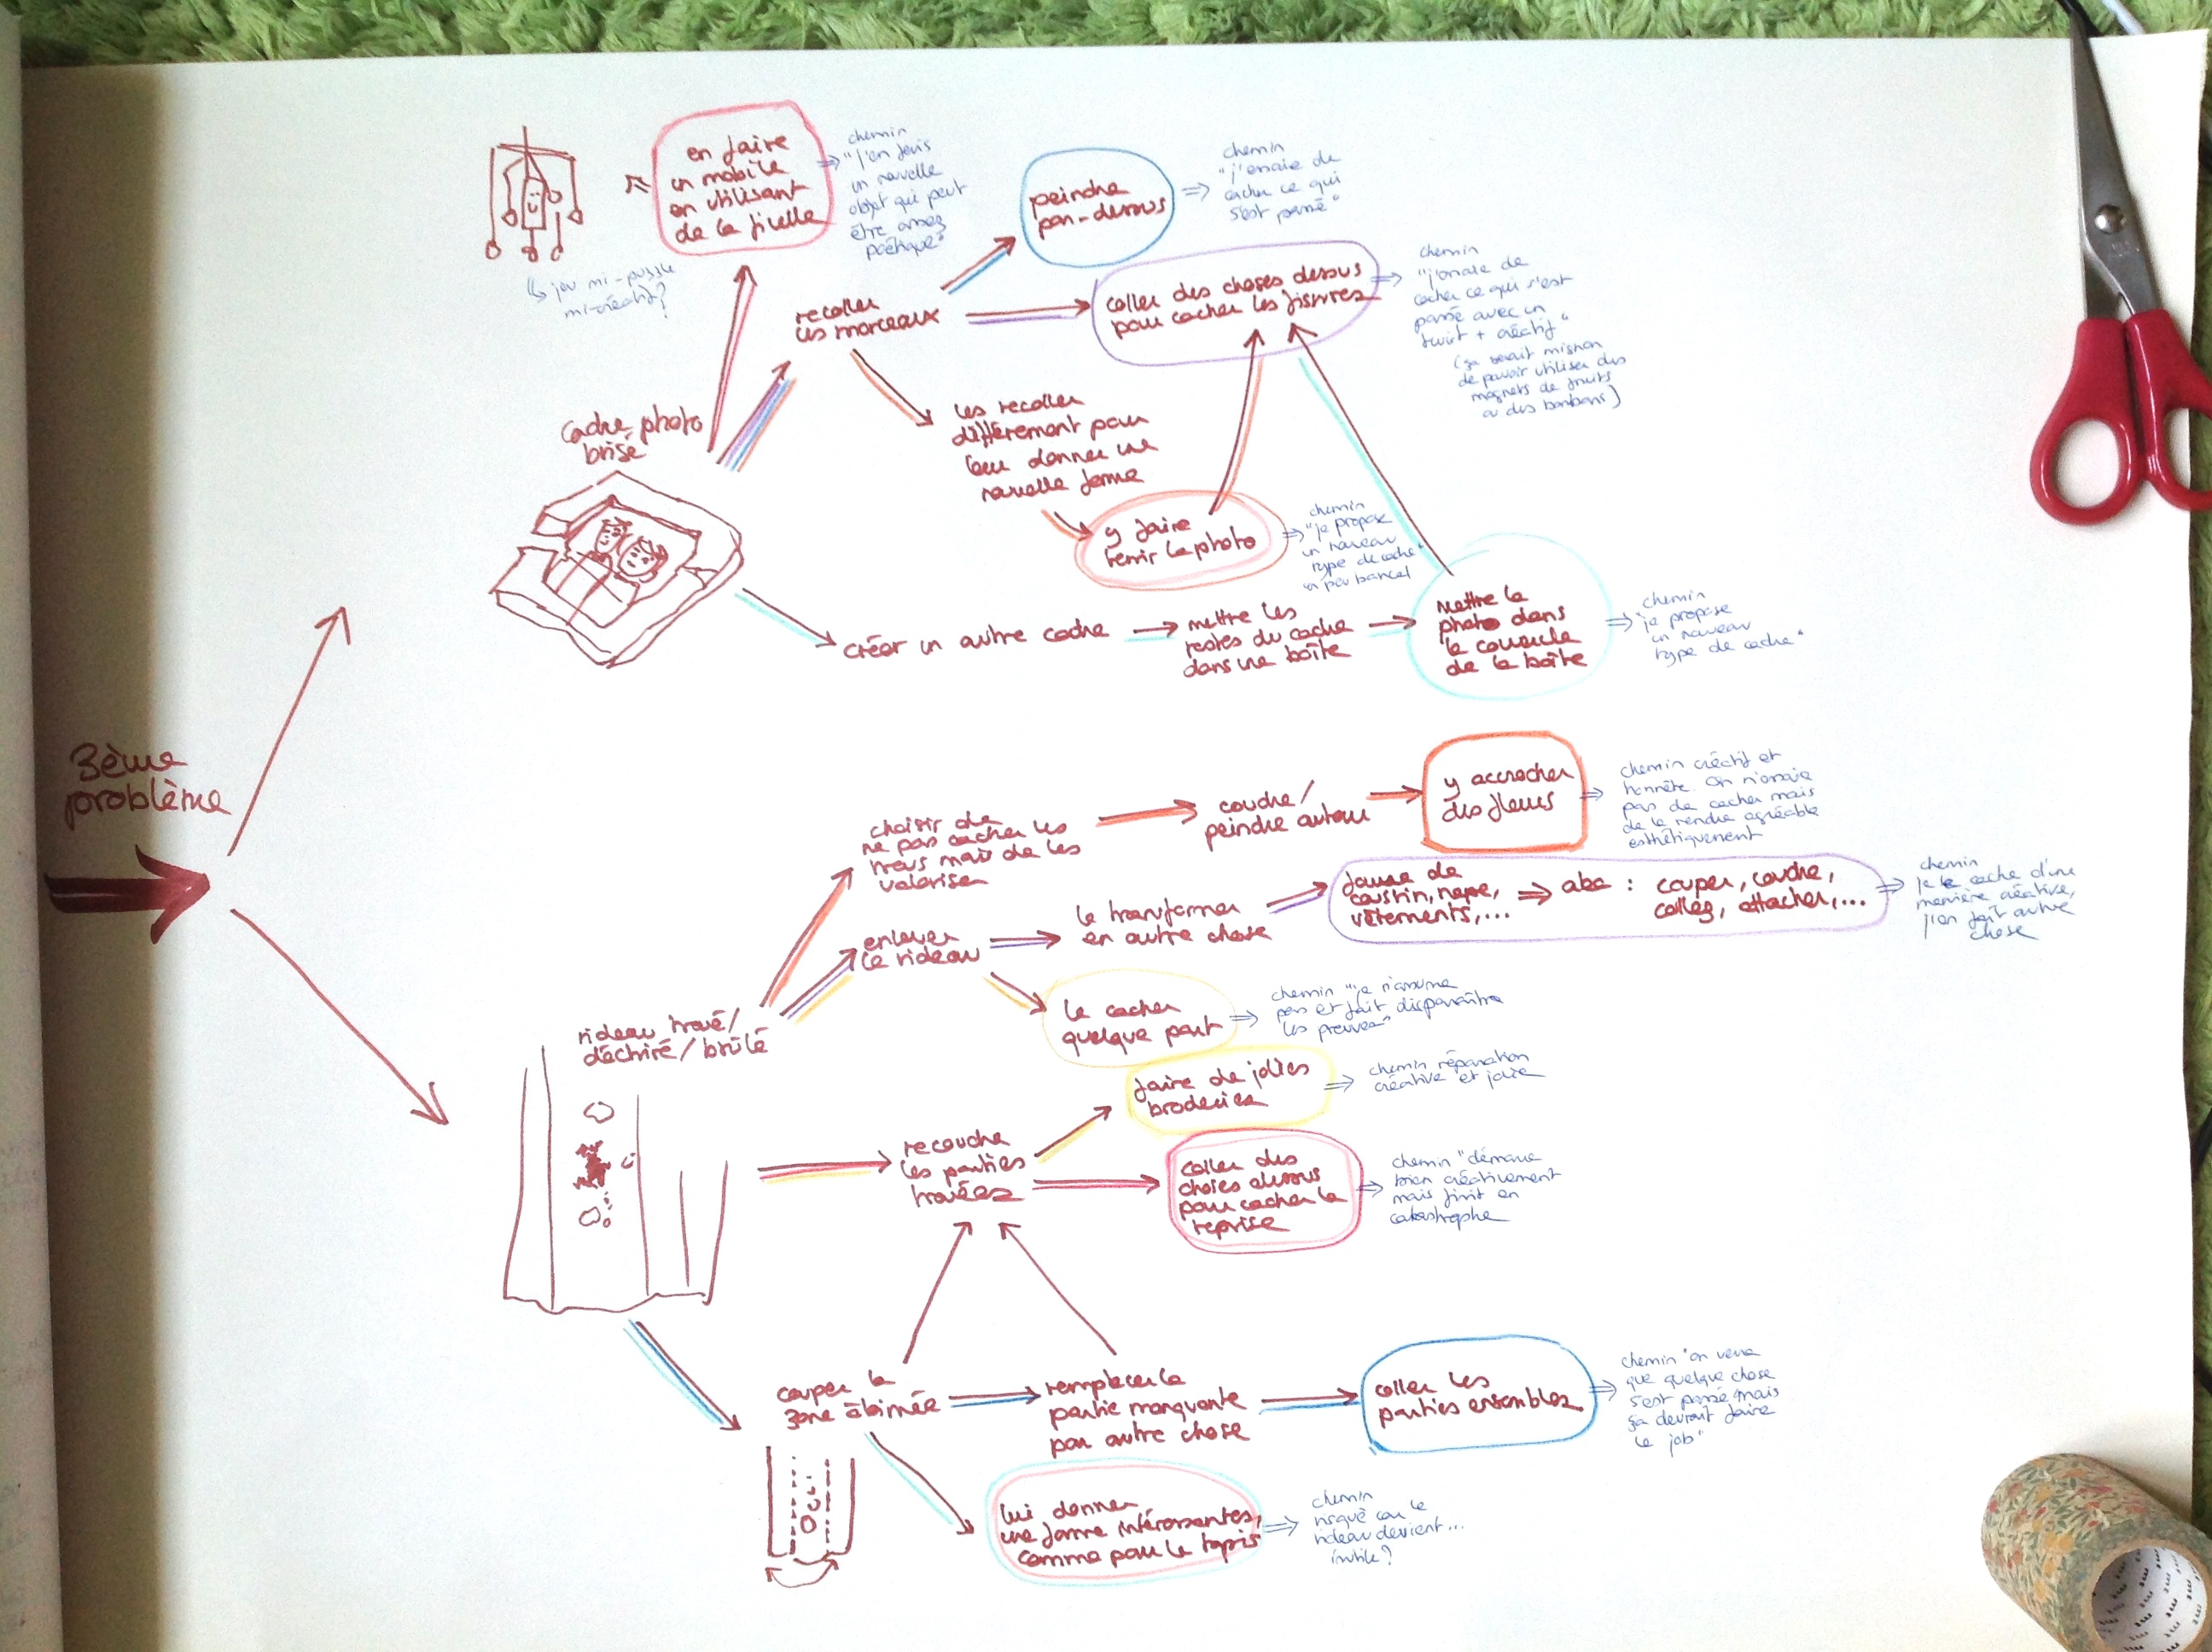 3ème
problème
en faire
un mobile
en utilisant
de la ficelle
chemin
"j'en fais
un nouvelle
objet qui peut
être assez
poétique"
↳ jeu mi-puzzle
mi-créatif?
cadre photo
brisé
recoller
les morceaux
peindre
par-dessus
chemin
"j'essaie de
cacher ce qui
s'est passé"
coller des choses dessus
pour cacher les fissures
chemin
"j'essaie de
cacher ce qui s'est
passé avec un
twist + créatif"
(ça serait mignon
de pouvoir utiliser des
magnets de fruits
ou des bonbons)
les recoller
différement pour
leur donner une
nouvelle forme
y faire
tenir la photo
chemin
"je propose
un nouveau
type de cadre"
un peu bancal
créer un autre cadre
mettre les
restes du cadre
dans une boîte
mettre la
photo dans
le couvercle
de la boîte
chemin
"je propose
un nouveau
type de cadre"
rideau troué/
déchiré/brûlé
choisir de
ne pas cacher les
trous mais de les
valoriser
coudre/
peindre autour
y accrocher
des fleurs
chemin créatif et
honnête. On n'essaie
pas de cacher mais
de le rendre agréable
esthétiquement
enlever
le rideau
le transformer
en autre chose
housse de
coussin, nappe,
vêtements,...
abc : couper, coudre,
coller, attacher,...
chemin
je le cache d'une
manière créative,
j'en fait autre
chose
le cacher
quelque part
chemin "je n'assume
pas et fait disparaître
les preuves"
recoudre
les parties
trouées
faire de jolies
broderies
chemin réparation
créative et jolie
coller des
choses dessus
pour cacher la
reprise
chemin "démarre
bien créativement
mais finit en
catastrophe
couper la
zone abimée
remplacer la
partie manquante
par autre chose
coller les
parties ensembles.
chemin "on verra
que quelque chose
s'est passé mais
ça devrait faire
le job"
lui donner
une forme intéressantes,
comme pour le tapis
chemin
risqué car le
rideau devient...
inutile?